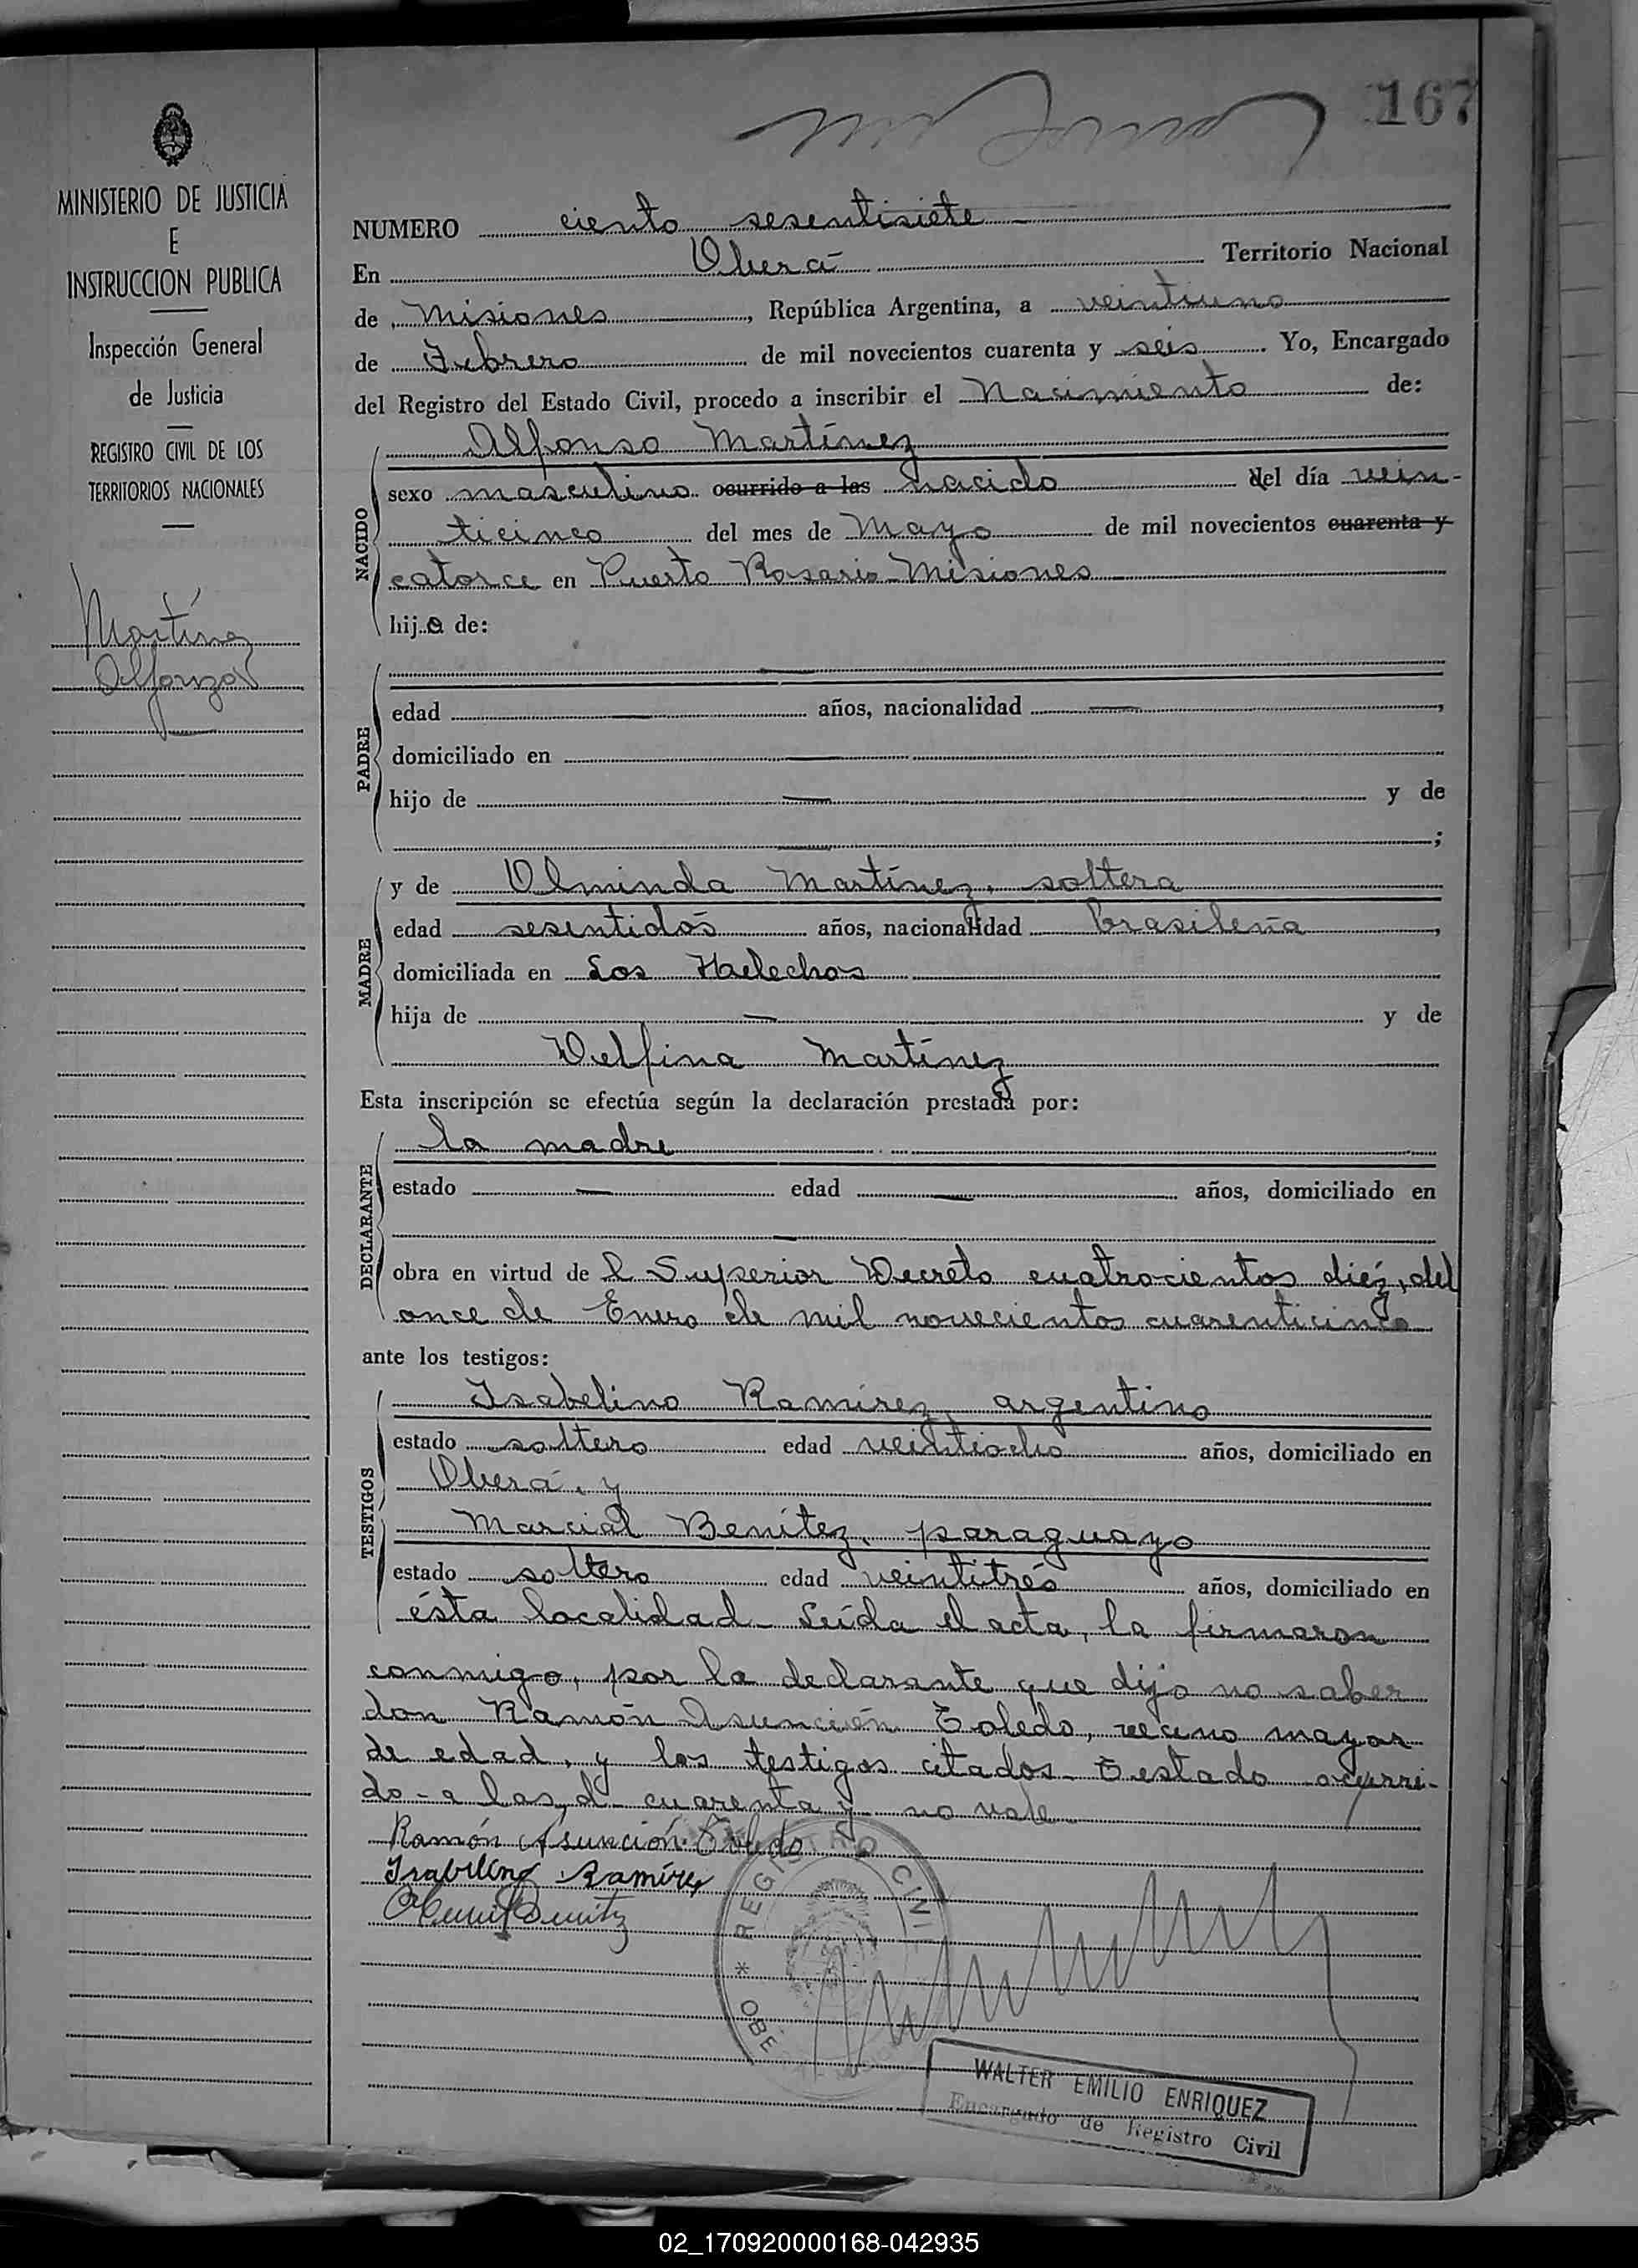 167
MINISTERIO DE JUSTICIA
E
INSTRUCCION PUBLICA
Inspección General
de Justicia
REGISTRO CIVIL DE LOS
TERRITORIOS NACIONALES
Martínez
Alfonzo
NUMERO ciento sesentisiete
En Oberá Territorio Nacional
de Misiones, República Argentina, a veintiuno
de Febrero de mil novecientos cuarenta y seis. Yo, Encargado
del Registro del Estado Civil, procedo a inscribir el Nacimiento de:
NACIDO
Alfonso Martínez
sexo masculino ocurrido a las nacido del día vein-
ticinco del mes de Mayo de mil novecientos cuarenta y
catorce en Puerto Rosario-Misiones
hijo de:
PADRE
edad años, nacionalidad ,
domiciliado en
hijo de y de
;
MADRE
y de Olminda Martínez, soltera
edad sesentidós años, nacionalidad brasileña,
domiciliada en Los Helechos
hija de y de
Delfina Martínez
Esta inscripción se efectúa según la declaración prestada por:
DECLARANTE
la madre
estado edad años, domiciliado en
obra en virtud de l Superior Decreto cuatrocientos diéz, del
once de Enero de mil novecientos cuarenticinco
ante los testigos:
TESTIGOS
Isabelino Ramírez argentino
estado soltero edad veintiocho años, domiciliado en
Oberá, y
Marcial Benítez, paraguayo
estado soltero edad veintitrés años, domiciliado en
ésta localidad- Leída el acta, la firmaron
conmigo, por la declarante que dijo no saber
don Ramón Asunción Toledo, vecino mayor
de edad, y los testigos citados- Testado ocurri-
do-a las, d cuarenta y no vale
Ramón Asunción Toledo
Isabelino Ramírez
Benítez
REGISTRO CIVIL
* OBE
WALTER EMILIO ENRIQUEZ
Encargado de Registro Civil
02_170920000168-042935